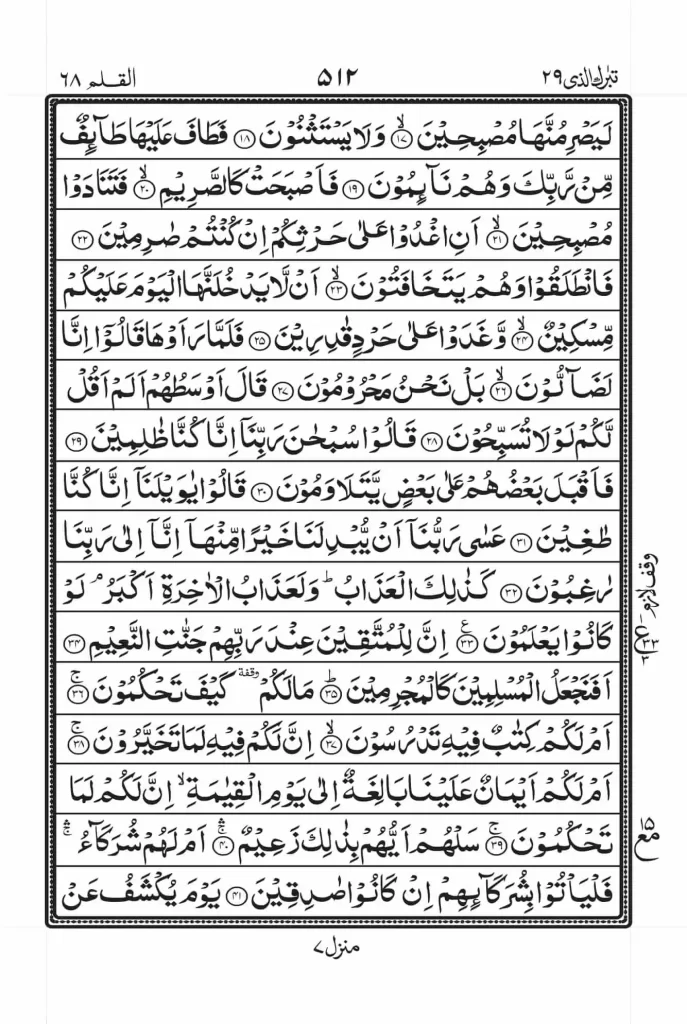 تبٰرك الذی ۲۹
۵۱۲
القلم ۶۸
لَيَصْرِمُنَّهَا مُصْبِحِيْنَ ۙ‏﴿۱۷﴾ وَلَا يَسْتَثْنُوْنَ ﴿۱۸﴾ فَطَافَ عَلَيْهَا طَآئِفٌ
مِّنْ رَّبِّكَ وَهُمْ نَآئِمُوْنَ ﴿۱۹﴾ فَاَصْبَحَتْ كَالصَّرِيْمِ ۙ‏﴿۲۰﴾ فَتَنَادَوْا
مُصْبِحِيْنَ ۙ‏﴿۲۱﴾ اَنِ اغْدُوْا عَلٰى حَرْثِكُمْ اِنْ كُنْتُمْ صٰرِمِيْنَ ﴿۲۲﴾
فَانْطَلَقُوْا وَهُمْ يَتَخَافَتُوْنَ ۙ‏﴿۲۳﴾ اَنْ لَّا يَدْخُلَنَّهَا الْيَوْمَ عَلَيْكُمْ
مِّسْكِيْنٌ ۙ‏﴿۲۴﴾ وَّغَدَوْا عَلٰى حَرْدٍ قٰدِرِيْنَ ﴿۲۵﴾ فَلَمَّا رَاَوْهَا قَالُوْۤا اِنَّا
لَضَآلُّوْنَ ۙ‏﴿۲۶﴾ بَلْ نَحْنُ مَحْرُوْمُوْنَ ﴿۲۷﴾ قَالَ اَوْسَطُهُمْ اَلَمْ اَقُلْ
لَّكُمْ لَوْلَا تُسَبِّحُوْنَ ﴿۲۸﴾ قَالُوْا سُبْحٰنَ رَبِّنَاۤ اِنَّا كُنَّا ظٰلِمِيْنَ ﴿۲۹﴾
فَاَقْبَلَ بَعْضُهُمْ عَلٰى بَعْضٍ يَّتَلَاوَمُوْنَ ﴿۳۰﴾ قَالُوْا يٰوَيْلَنَاۤ اِنَّا كُنَّا
طٰغِيْنَ ﴿۳۱﴾ عَسٰى رَبُّنَاۤ اَنْ يُّبْدِلَنَا خَيْرًا مِّنْهَاۤ اِنَّاۤ اِلٰى رَبِّنَا
رٰغِبُوْنَ ﴿۳۲﴾ كَذٰلِكَ الْعَذَابُ ؕ وَلَعَذَابُ الْاٰخِرَةِ اَكْبَرُ ۘ لَوْ
كَانُوْا يَعْلَمُوْنَ ﴿۳۳﴾ اِنَّ لِلْمُتَّقِيْنَ عِنْدَ رَبِّهِمْ جَنّٰتِ النَّعِيْمِ ﴿۳۴﴾
اَفَنَجْعَلُ الْمُسْلِمِيْنَ كَالْمُجْرِمِيْنَ ؕ‏﴿۳۵﴾ مَا لَكُمْ وقفة كَيْفَ تَحْكُمُوْنَ ۚ‏﴿۳۶﴾
اَمْ لَكُمْ كِتٰبٌ فِيْهِ تَدْرُسُوْنَ ۙ‏﴿۳۷﴾ اِنَّ لَكُمْ فِيْهِ لَمَا تَخَيَّرُوْنَ ۚ‏﴿۳۸﴾
اَمْ لَكُمْ اَيْمَانٌ عَلَيْنَا بَالِغَةٌ اِلٰى يَوْمِ الْقِيٰمَةِ ۙ اِنَّ لَكُمْ لَمَا
تَحْكُمُوْنَ ۚ‏﴿۳۹﴾ سَلْهُمْ اَيُّهُمْ بِذٰلِكَ زَعِيْمٌ ۛۚ‏﴿۴۰﴾ اَمْ لَهُمْ شُرَكَآءُ ۛۚ
فَلْيَاْتُوْا بِشُرَكَآئِهِمْ اِنْ كَانُوْا صٰدِقِيْنَ ﴿۴۱﴾ يَوْمَ يُكْشَفُ عَنْ
وقف لازم
ع
۳۳
۳
مع
۱۵
منزل ۷